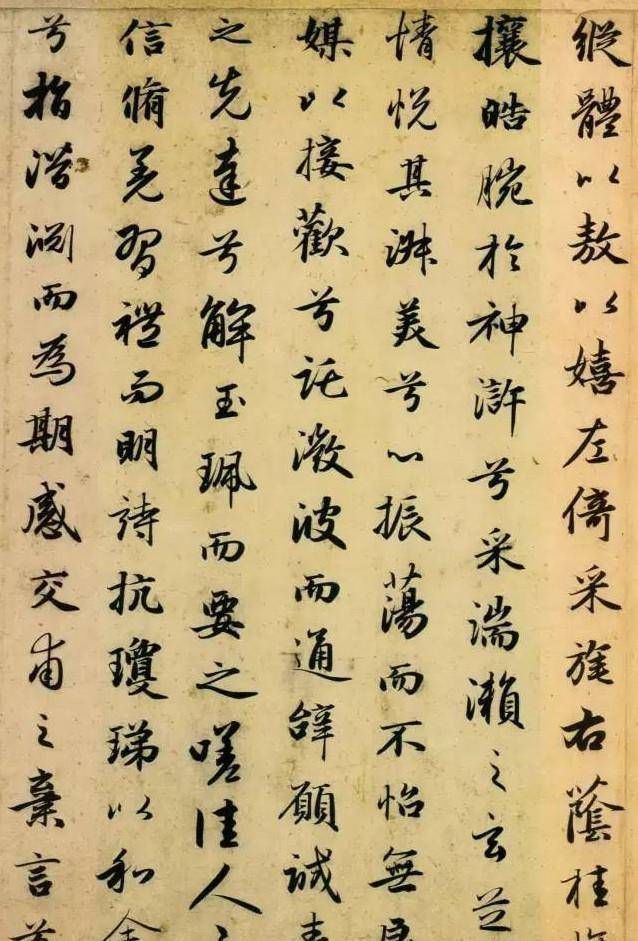 縱體以敖以嬉左倚采旄右蔭桂
攘皓腕於神滸兮采湍瀨之玄芝
情悅其淑美兮心振蕩而不怡無良
媒以接歡兮託微波而通辭願誠素
之先達兮解玉珮而要之嗟佳人之
信脩羌習禮而明詩抗瓊珶以和余
兮指潛淵而為期感交甫之棄言